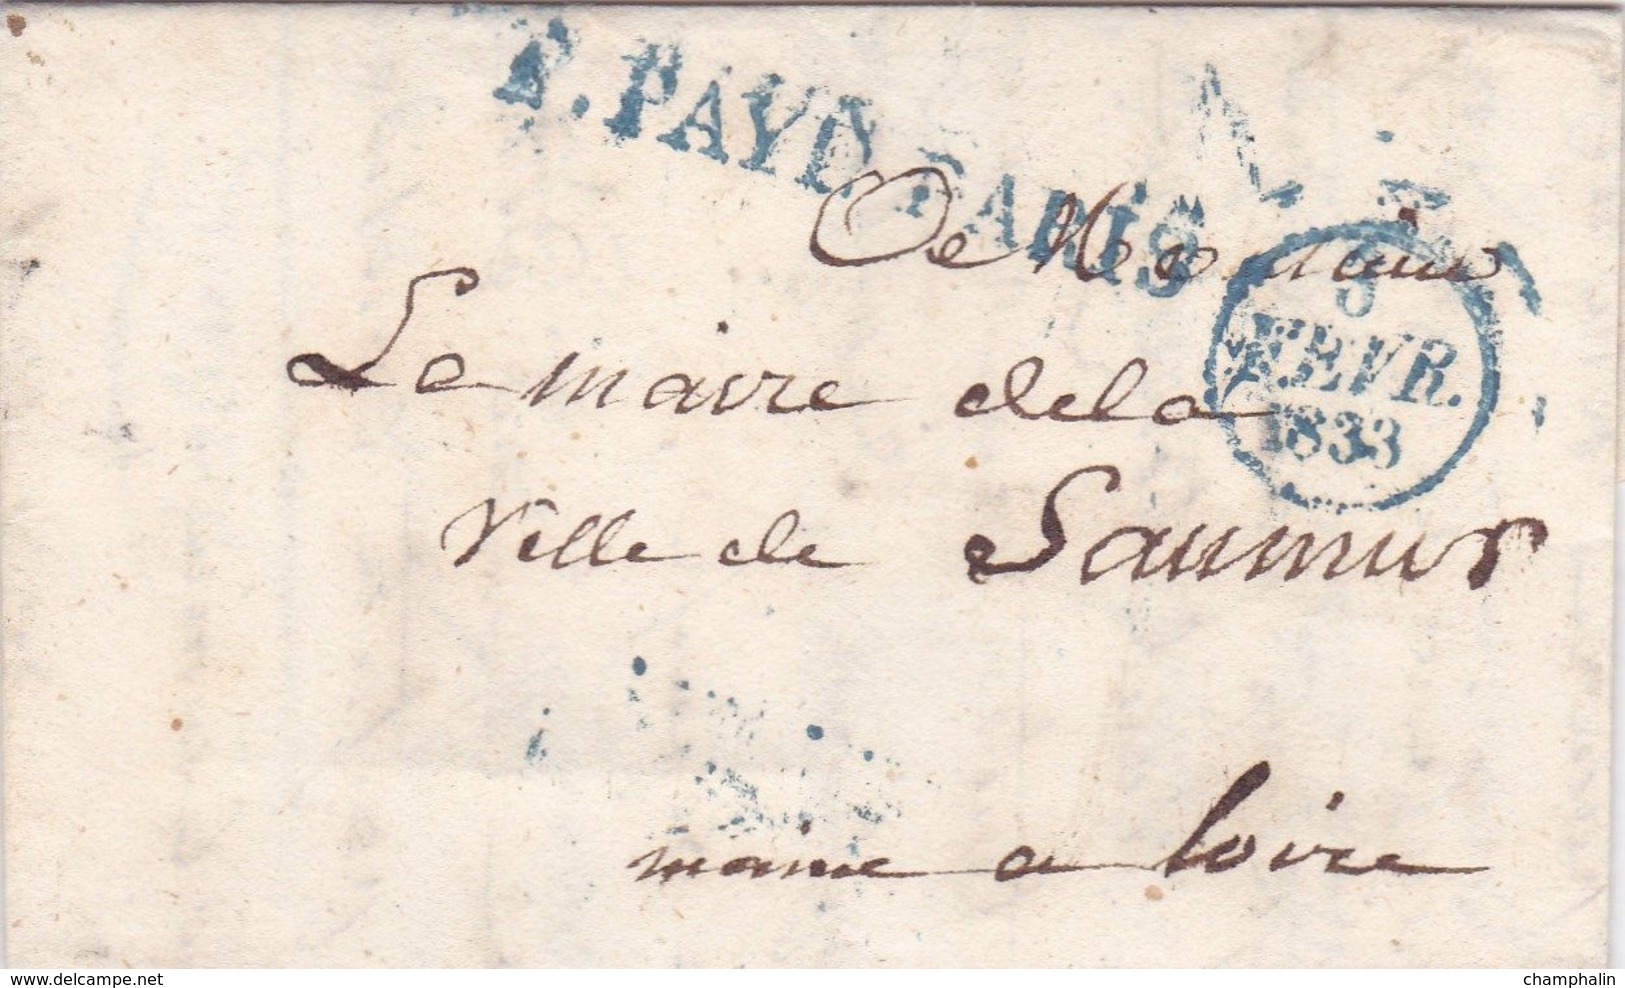 P. PAYÉ PARIS
A Monsieur
5
FEVR.
1833
Le maire de la
Ville de Saumur
maine a loire
www.delcampe.net
champhalin